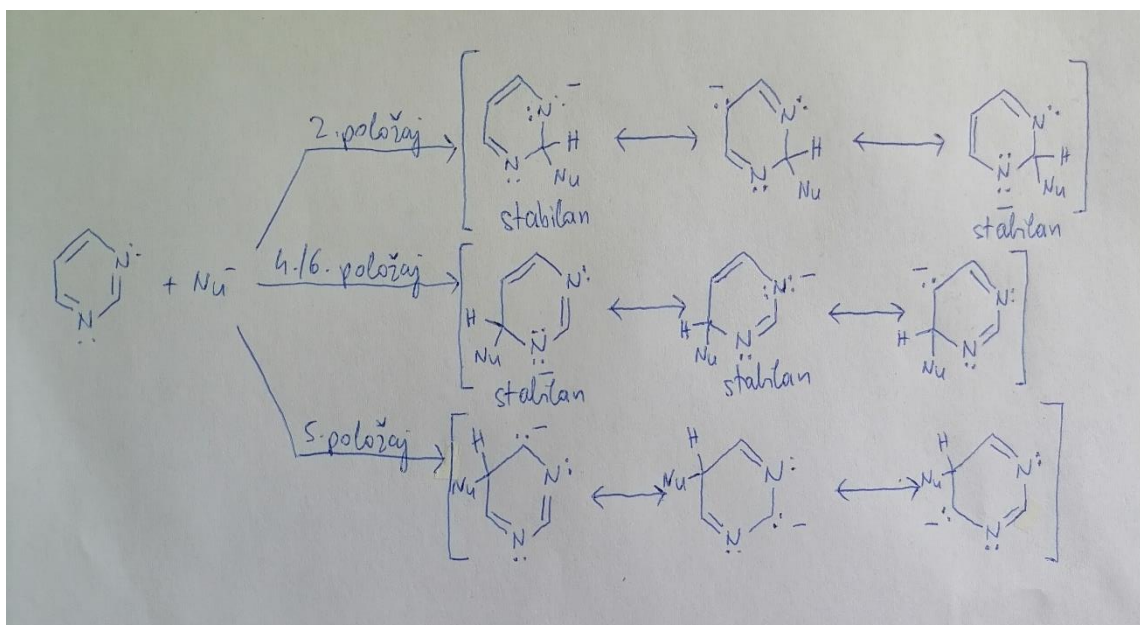 2. položaj
N N H Nu N N H Nu N N H Nu
stabilan stabilan
N N + Nu⁻
4./6. položaj
H Nu N N H Nu N N H Nu N N
stabilan stabilan
5. položaj
H Nu N N H Nu N N H Nu N N